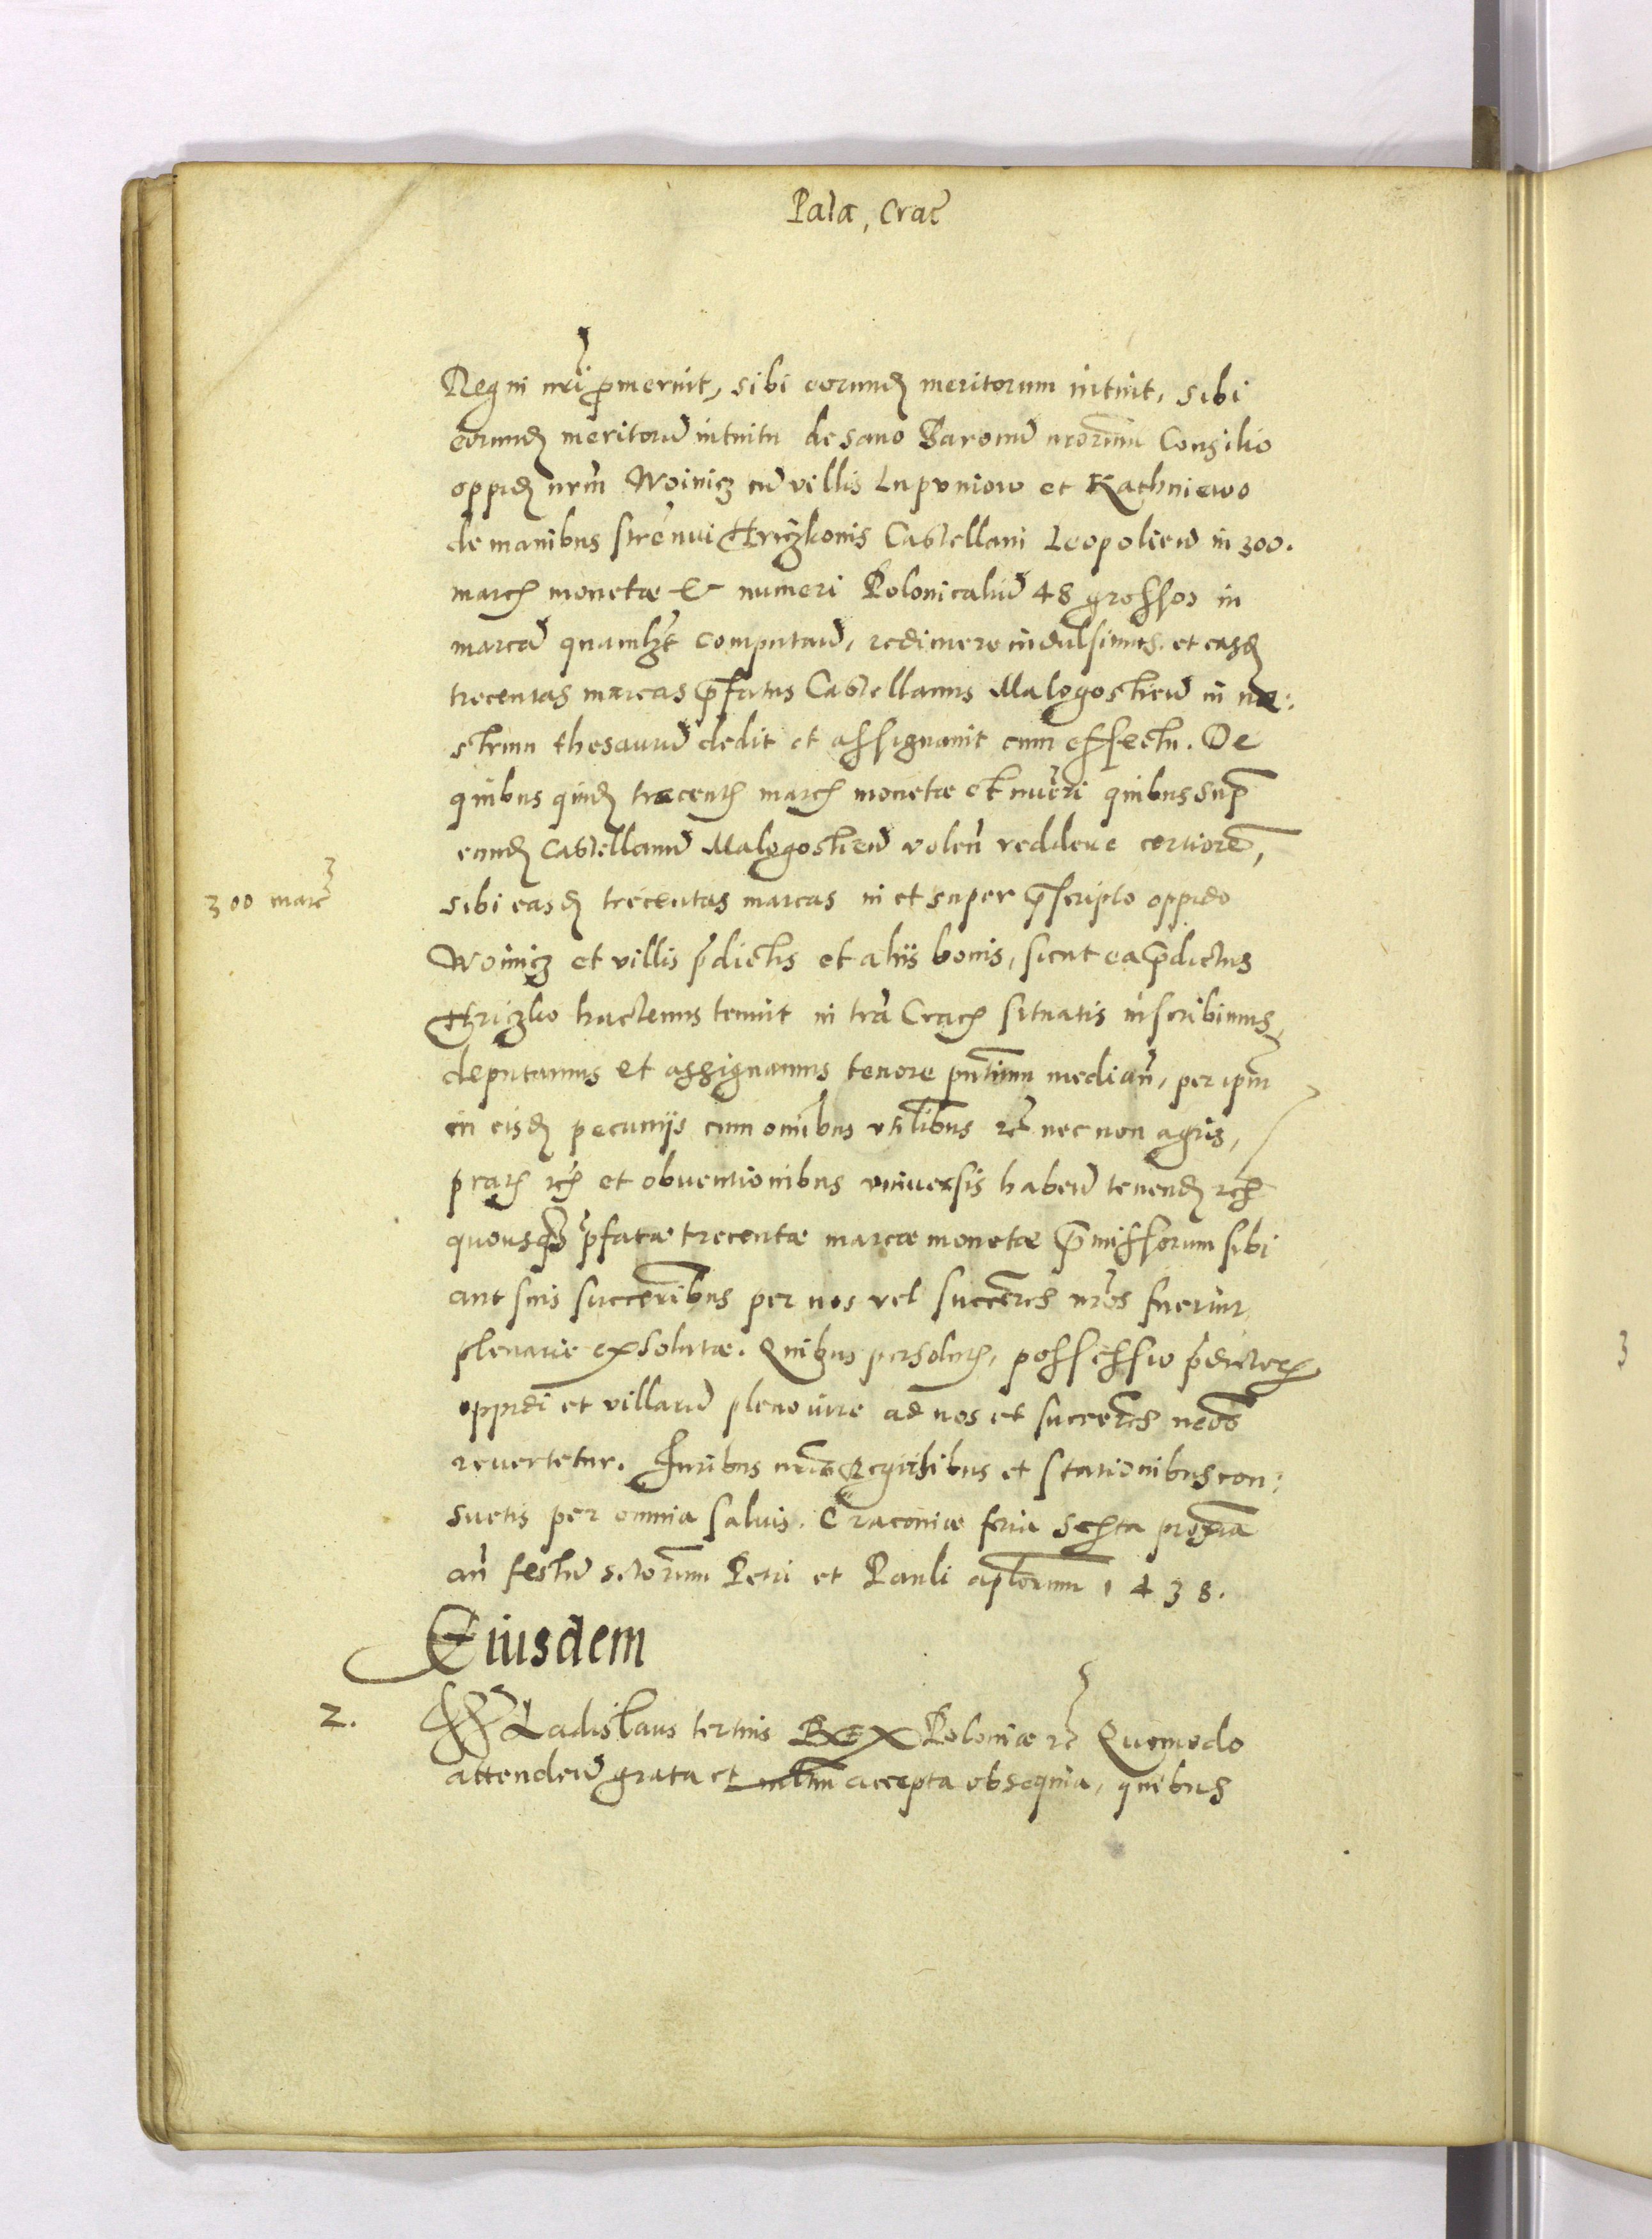 Pala, Crac̃
Regni nr̃i ꝓmeruit, sibi eorundꝫ meritorum intuit, sibi
eorundꝫ meritorũ intuitu de sano Baronũ nrõrum Consilio
oppidꝫ nrm̃ Woinicz cũ villis Lupvniow et Kathniewo
de manibus strenui Hriczkonis Castellani Leopolien̄ in 300.
marcꝫ monetæ & numeri Polonicaliũ 48 grossos in
marcã quamlꝫt computan̄, redimere indulsimus. et easdꝫ
trecentas marcas p̄fatus Castellanus Malogostien̄ in no:
strum thesaurũ dedit et assignauit cum effectu. De
quibus quidꝫ trecentꝫ marcꝫ monetæ et nũeri quibus sup̄
eundꝫ Castellanũ Malogostien̄ volen̄ reddere certiorẽ,
300 marc̃
sibi easdꝫ trecentas marcas in et super p̄scripto oppido
Woinicz et villis p̄dictis et aliis bonis, sicut ea p̄dictus
Hriczko hactenus tenuit in tr̄a Cracꝫ situatis inscribimus,
deputamus et assignamus tenore pn̄tium median̄, per ipm̄
in eisdꝫ pecunijs cum omĩbus vtilibus rc̃ nec non agris,
pratꝫ rcꝫ et obuentionibus vniuersis haben̄ tenendꝫ rcꝫ
quousqꝫ p̄fatæ trecentæ marcæ monetæ p̄missorum sibi
aut suis succeribus per nos vel succeres nr̃os fuerint
plenarie exsolutæ. Quibus persolutꝫ, possessio p̄dictorꝫ
oppidi et villarũ pleno iure ad nos et succeres nrõs
reuertetur. Iuribus nr̃is Regalibus et stationibus con:
suetis per omnia saluis. Cracouiæ feria sexta proxĩa
an̄ festũ sctõrum Petri et Pauli aplõrum 1438.
Eiusdem
2. Wladislaus tertius REX Poloniæ rc̃ Quomodo
attenden̄ grata et mltm̄ accepta obsequia, quibus